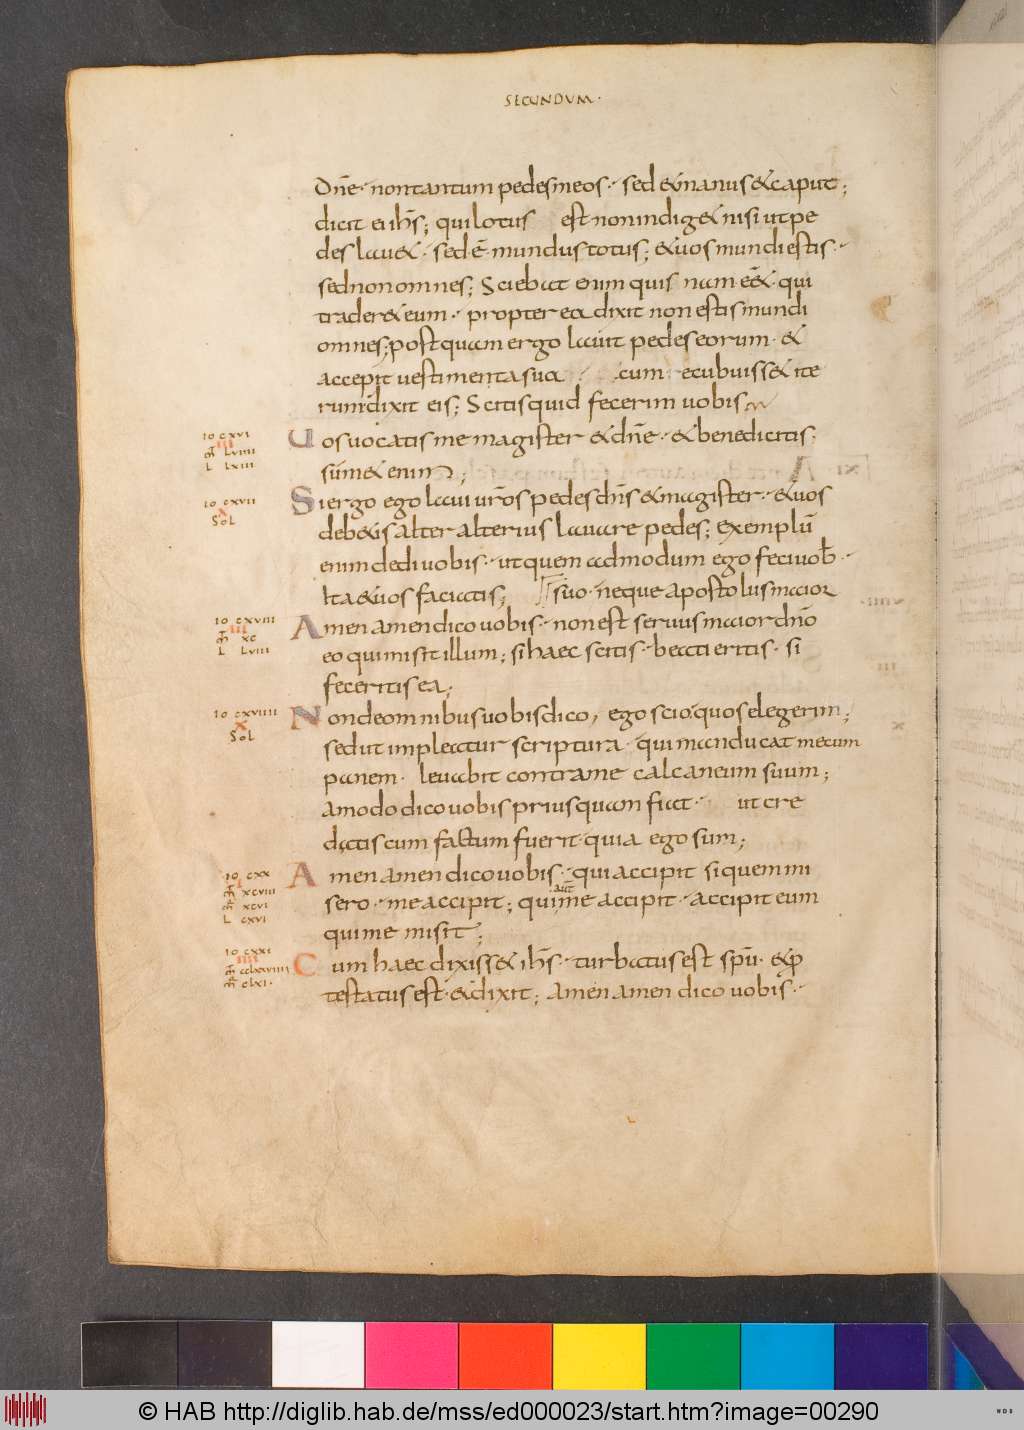 SECUNDUM·
Dñe· non tantum pedes meos· sed & manus & caput;
dicit ei ihs̄; qui lotus est non indig& nisi ut pe
des lau&· sed ē mundus totus; & uos mundi estis·
sed non omnes; Sciebat enim quis nam e&· qui
trader& eum· propterea dixit non estis mundi
omnes; postquam ergo lauit pedes eorum· &
accepit uestimenta sua cum recubuiss& ite
rum dixit eis; Scitis quid fecerim uobis
Uos uocatis me magister & dñe· & bene dicitis·
sum & enim;
Si ergo ego laui uros pedes dñs & magister· & uos
deb&is alter alterius lauare pedes; exemplū
enim dedi uobis· ut quem admodum ego feci uob·
Ita & uos faciatis; suo· neque apostolus maior
Amen amen dico uobis· non est seruus maior dño
eo qui misit illum; si haec scitis· beati eritis· si
feceritis ea;
Non de omnibus uobis dico, ego scio quos elegerim;
sed ut impleatur scriptura· qui manducat mecum
panem· leuabit contra me calcaneum suum;
amodo dico uobis priusquam fiat· ut cre
datis cum factum fuerit· quia ego sum;
Amen amen dico uobis· qui accipit si quem mi
sero· me accipit; qui aut me accipit· accipit eum
qui me misit;
Cum haec dixiss& ihs̄· turbatus est spū· & p
testatus est· & dixit; amen amen dico uobis·
IO CXVI
III
L LXIII
IO CXVII
X
SOL
IO CXVIII
III
XC
L LVIII
IO CXVIIII
X
SOL
IO CXX
I
XCVIII
XCVI
L CXVI
IO CXXI
IIII
CCLXXVIIII
CLXI·
© HAB http://diglib.hab.de/mss/ed000023/start.htm?image=00290
WDB